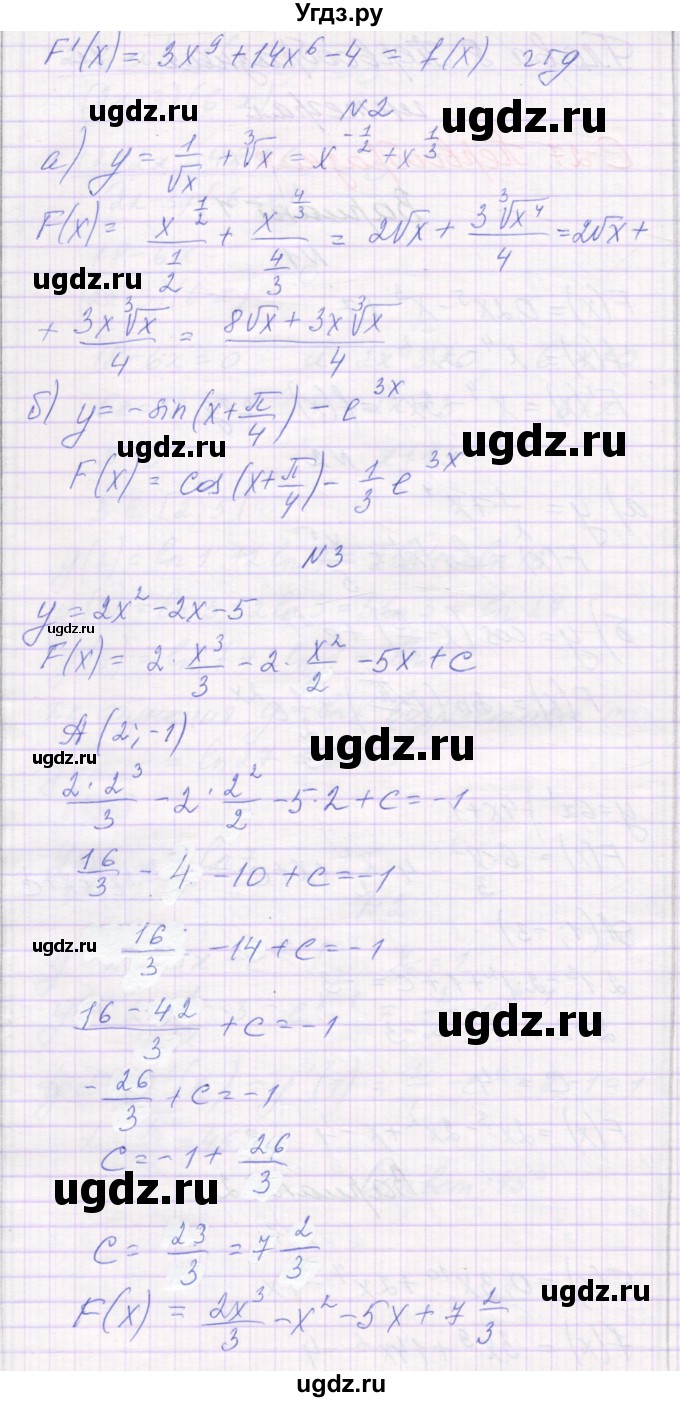 Угдз.ру
F'(x) = 3x⁹ + 14x⁶ - 4 = f(x) чтд
ugdz.ru
ugdz.ru
N2
а) y = 1/√x + ∛x = x^(-1/2) + x^(1/3)
F(x) = x^(1/2)/(1/2) + x^(4/3)/(4/3) = 2√x + 3∛x⁴/4 = 2√x +
ugdz.ru
ugdz.ru
+ 3x∛x/4 = (8√x + 3x∛x)/4
б) y = -sin(x + π/4) - e^(3x)
ugdz.ru
ugdz.ru
F(x) = cos(x + π/4) - 1/3 e^(3x)
N3
y = 2x² - 2x - 5
ugdz.ru
F(x) = 2 · x³/3 - 2 · x²/2 - 5x + C
A(2; -1)
ugdz.ru
ugdz.ru
2·2³/3 - 2 · 2²/2 - 5·2 + C = -1
16/3 - 4 - 10 + C = -1
ugdz.ru
16/3 - 14 + C = -1
(16 - 42)/3 + C = -1
ugdz.ru
- 26/3 + C = -1
C = -1 + 26/3
ugdz.ru
C = 23/3 = 7 2/3
ugdz.ru
F(x) = 2x³/3 - x² - 5x + 7 2/3
ugdz.ru